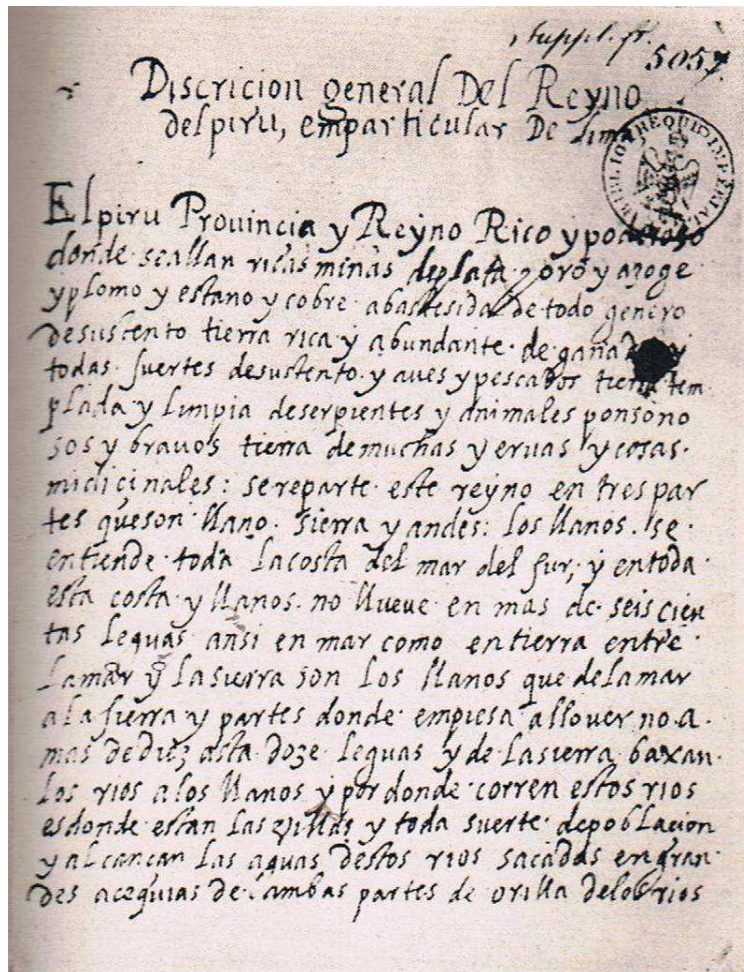 suppl. fr.
5057
Discricion general Del Reyno
delpiru, emparticular De Lima
BIBLIOTHEQUE IMPERIALE
El piru Prouincia y Reyno Rico y poderoso
donde se allan ricas minas deplata y oro y azoge
y plomo y estano y cobre abastesida de todo genero
desustento tierra rica y abundante de ganados y
todas suertes desustento y aues y pescados tierra tem
plada y limpia deserpientes y animales ponsono
sos y brauos tierra demuchas yeruas y cosas
midicinales: sereparte este reyno en tres par
tes queson llano sierra y andes: los llanos se
entiende toda lacosta del mar del sur, y entoda
esta costa y llanos no llueue en mas de seis cien
tas leguas ansi en mar como entierra entre
Lamar y Lasierra son los llanos que delamar
ala sierra y partes donde empiesa allouer no a
mas dediez asta doze leguas y de Lasierra baxan
los rios alos llanos y por donde corren estos rios
esdonde estan las villas y toda suerte depoblacion
y alcancan las aguas destos rios sacadas en gran
des acequias de ambas partes de orilla delos rios